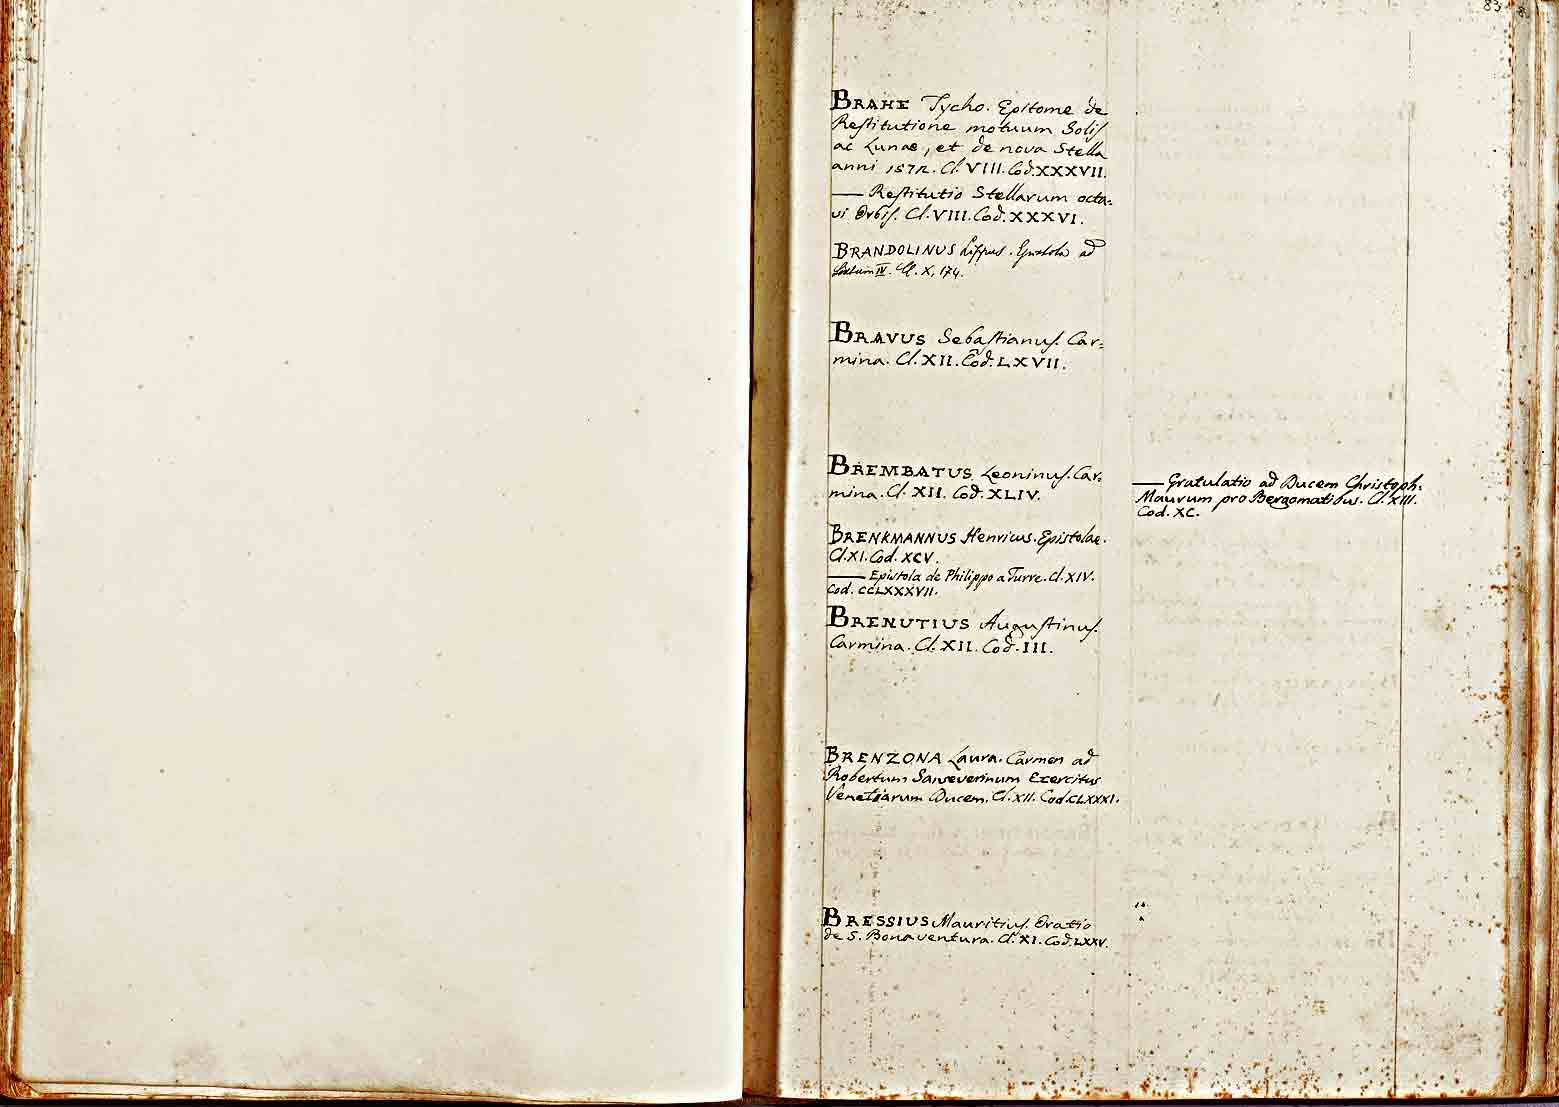 83
BRAHE Tycho. Epitome de
Restitutione motuum Solis
ac Lunae, et de nova Stella
anni 1572. Cl. VIII. Cod. XXXVII.
— Restitutio Stellarum octa=
vi Orbis. Cl. VIII. Cod. XXXVI.
BRANDOLINUS Lippus. Epistola ad
IV. Cl. X, 174.
BRAVUS Sebastianus. Car=
mina. Cl. XII. Cod. LXVII.
BREMBATUS Leoninus. Car=
mina. Cl. XII. Cod. XLIV.
BRENKMANNUS Henricus. Epistolae.
Cl. XI. Cod. XCV.
— Epistola de Philippo a Turre. Cl. XIV.
Cod. CCLXXXVII.
BRENUTIUS Augustinus.
Carmina. Cl. XII. Cod. III.
BRENZONA Laura. Carmen ad
Robertum Sanseverinum Exercitus
Venetiarum Ducem. Cl. XII. Cod. CLXXXI.
BRESSIUS Mauritius. Oratio
de S. Bonaventura. Cl. XI. Cod. LXXV.
— Gratulatio ad Ducem Christoph.
Maurum pro Bergomatibus. Cl. XIII.
Cod. XC.